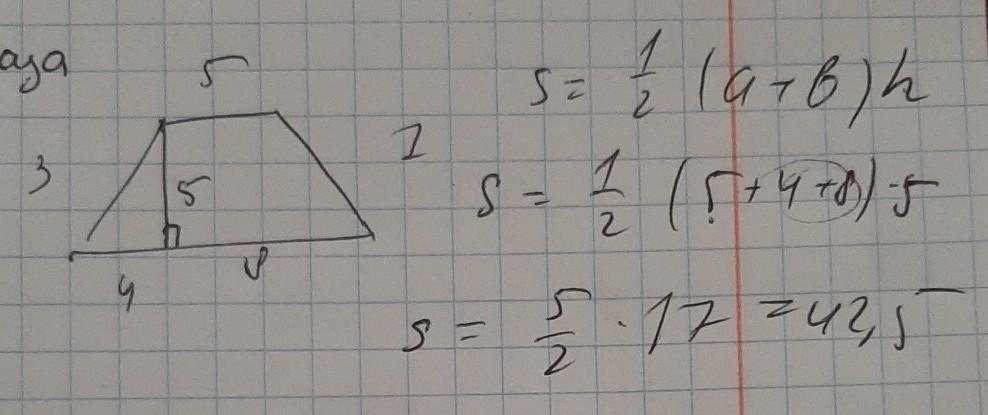 5
3
5
4 8
S = 1/2 (a + b) h
S = 1/2 (5 + 4 + 8) · 5
S = 5/2 · 17 = 42,5